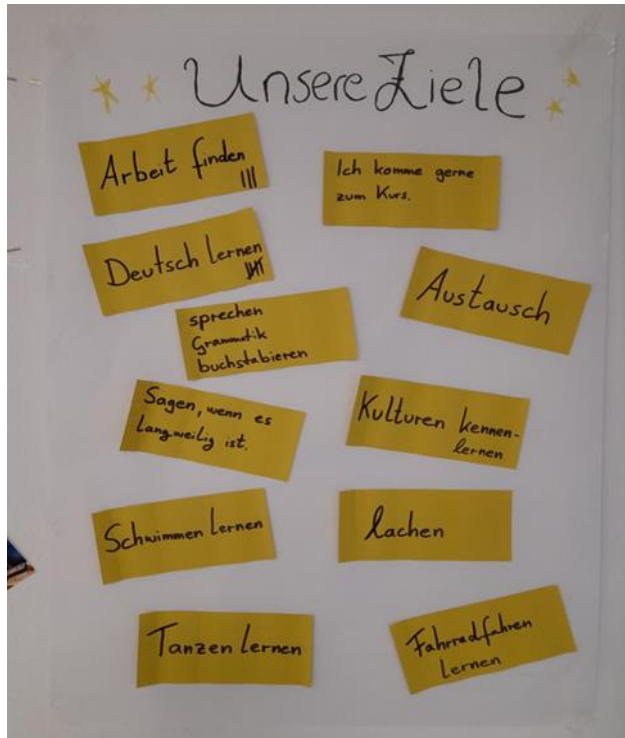 Unsere Ziele
Arbeit finden
|||
Ich komme gerne
zum Kurs.
Deutsch lernen
||||
Austausch
sprechen
Grammatik
buchstabieren
Sagen, wenn es
langweilig ist.
Kulturen kennen-
lernen
Schwimmen lernen
lachen
Tanzen lernen
Fahrradfahren
lernen